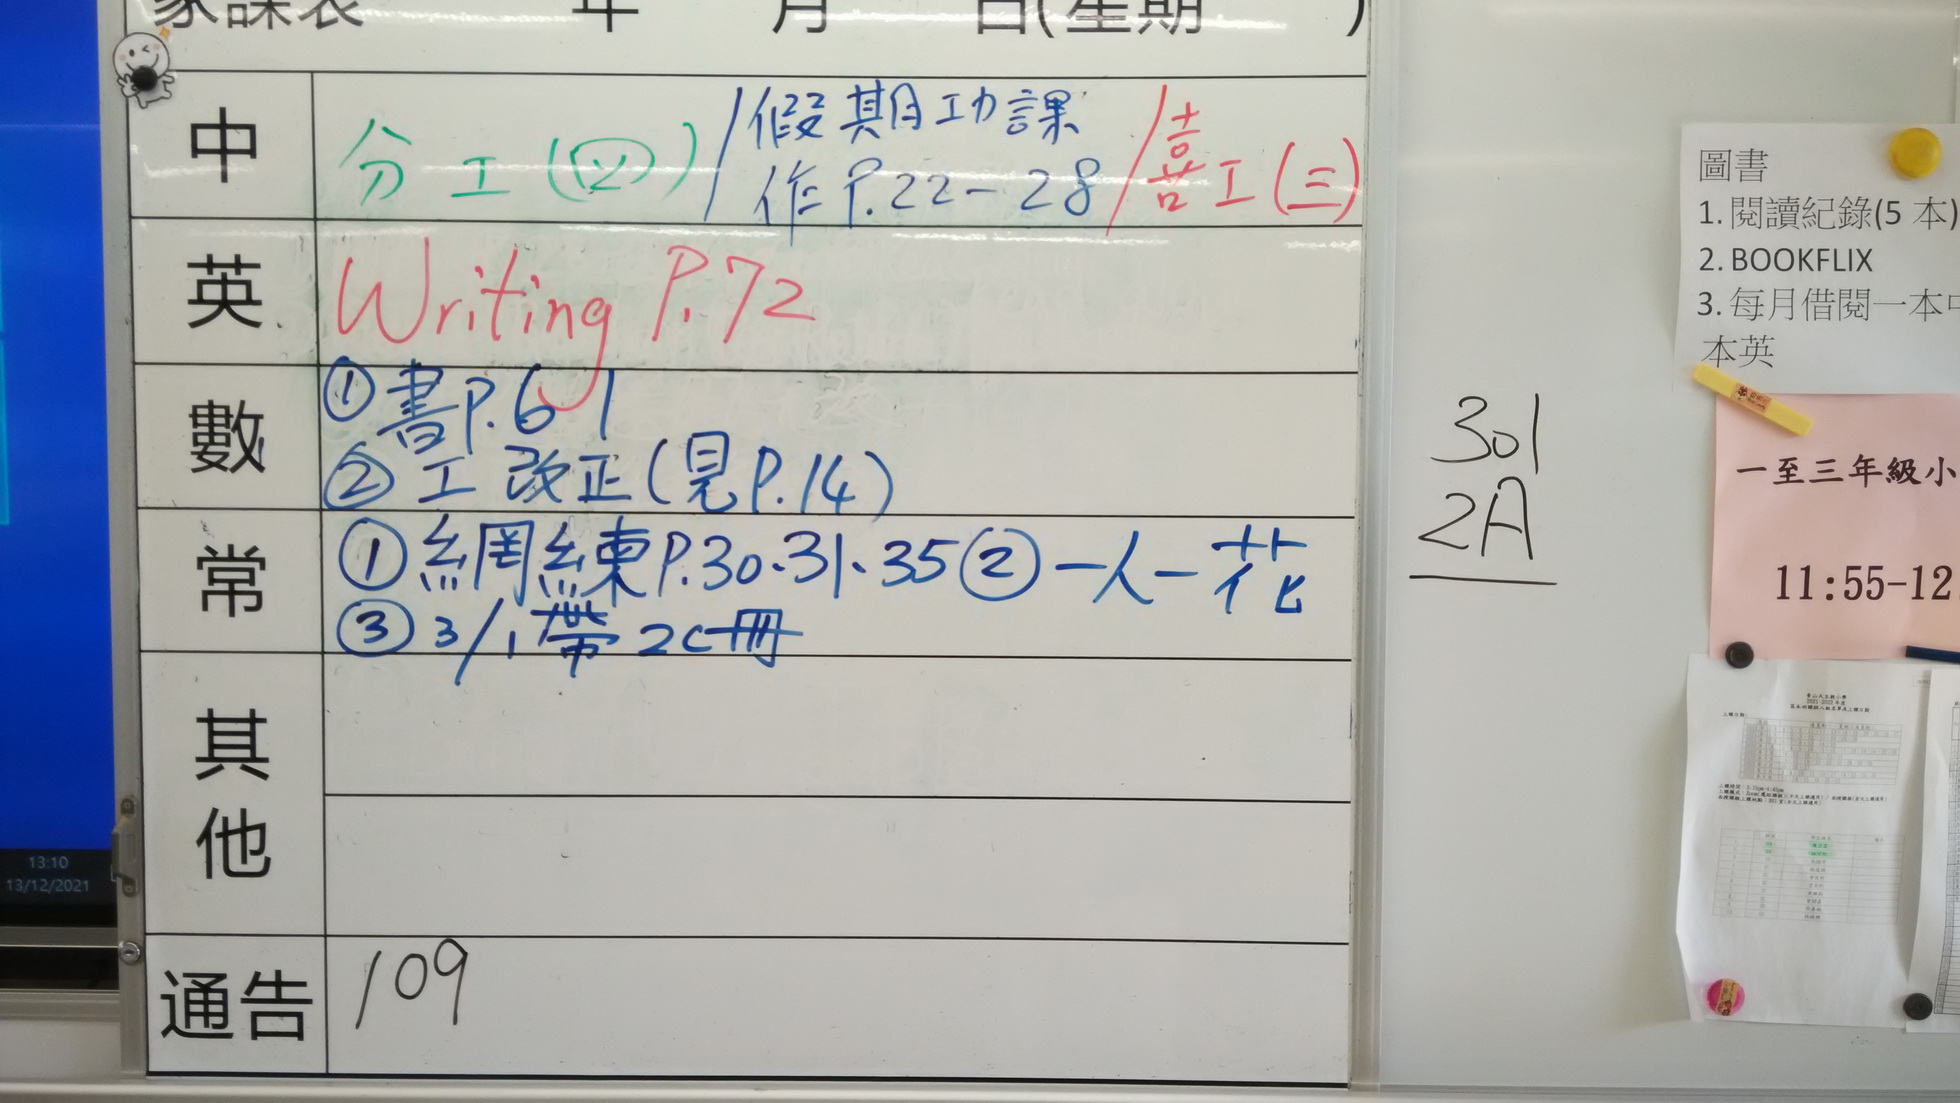 家課表 年 月 日(星期 )
中
分工(四)/假期功課
作P.22-28/喜工(三)
英
Writing P.72
數
①書P.61
②工改正(見P.14)
常
①網練P.30、31、35②一人一花
③3/1帶2C冊
其他
通告
109
301
2A
圖書
1. 閱讀紀錄(5 本)
2. BOOKFLIX
3. 每月借閱一本中
本英
一至三年級小
11:55-12
13:10
13/12/2021